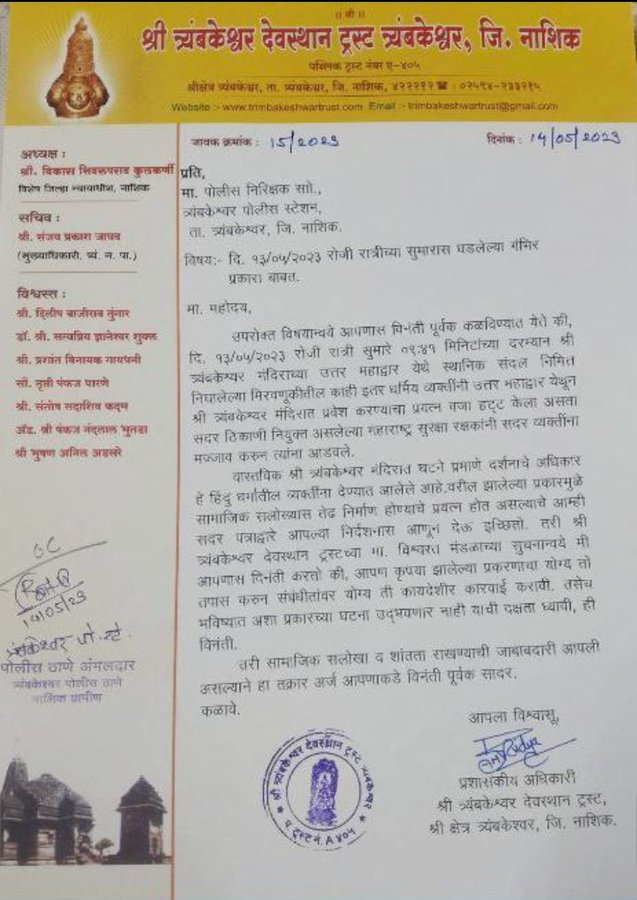 ॥ श्री ॥
श्री त्र्यंबकेश्वर देवस्थान ट्रस्ट त्र्यंबकेश्वर, जि. नाशिक
पब्लिक ट्रस्ट नंबर ए-४०५
श्रीक्षेत्र त्र्यंबकेश्वर, ता. त्र्यंबकेश्वर, जि. नाशिक, ४२२२१२ ☎ : ०२५९४-२३३२१५
Website :- www.trimbakeshwartrust.com Email :- trimbakeshwartrust@gmail.com
जावक क्रमांक : 15/2023
दिनांक : 14/05/2023
अध्यक्ष :
श्री. विकास शिवरुपराव कुलकर्णी
विशेष जिल्हा न्यायाधीश, नाशिक
सचिव :
श्री. संजय प्रकाश जाधव
(मुख्याधिकारी, त्र्यं. न. पा.)
विश्वस्त :
श्री. दिलीप बाजीराव तुंगार
डॉ. श्री. सत्यप्रिय ज्ञानेश्वर शुक्ल
श्री. प्रशांत विनायक गायधनी
सौ. तृप्ती पंकज धारणे
श्री. संतोष सदाशिव कदम
ॲड. श्री पंकज नंदलाल भुतडा
श्री भुषण अनिल अडसरे
OC
14/05/23
पोलीस ठाणे अंमलदार
त्र्यंबकेश्वर पोलीस ठाणे
नाशिक ग्रामीण
प्रति,
मा. पोलीस निरिक्षक सो.,
त्र्यंबकेश्वर पोलीस स्टेशन,
ता. त्र्यंबकेश्वर, जि. नाशिक.
विषय:- दि. १३/०५/२०२३ रोजी रात्रीच्या सुमारास घडलेल्या गंभिर
प्रकारा बाबत.
मा. महोदय,
उपरोक्त विषयान्वये आपणास विनंती पूर्वक कळविण्यात येते की,
दि. १३/०५/२०२३ रोजी रात्री सुमारे ०९:४१ मिनिटांच्या दरम्यान श्री
त्र्यंबकेश्वर मंदिराच्या उत्तर महाद्वार येथे स्थानिक संदल निमित
निघालेल्या मिरवणूकीतील काही इतर धर्मिय व्यक्तींनी उत्तर महाद्वार येथून
श्री त्र्यंबकेश्वर मंदिरात प्रवेश करण्याचा प्रयत्न वजा हट्ट केला असता
सदर ठिकाणी नियुक्त असलेल्या महाराष्ट्र सुरक्षा रक्षकांनी सदर व्यक्तींना
मज्जाव करुन त्यांना आडवले.
वास्तविक श्री त्र्यंबकेश्वर मंदिरात घटने प्रमाणे दर्शनाचे अधिकार
हे हिंदु धर्मातील व्यक्तींना देण्यात आलेले आहे.वरील झालेल्या प्रकारमुळे
सामाजिक सलोख्यास तेढ निर्माण होण्याचे प्रयत्न होत असल्याचे आम्ही
सदर पत्राद्वारे आपल्या निर्दशनास आणून देऊ इच्छितो. तरी श्री
त्र्यंबकेश्वर देवस्थान ट्रस्टच्या मा. विश्वस्त मंडळाच्या सुचनान्वये मी
आपणास विनंती करतो की, आपण कृपया झालेल्या प्रकरणाचा योग्य तो
तपास करुन संबंधीतांवर योग्य ती कायदेशीर कारवाई करावी. तसेच
भविष्यात अशा प्रकारच्या घटना उद्भवणार नाही याची दक्षता घ्यावी, ही
विनंती.
तरी सामाजिक सलोखा व शांतता राखण्याची जाबाबदारी आपली
असल्याने हा तक्रार अर्ज आपणाकडे विनंती पूर्वक सादर.
कळावे.
आपला विश्वासू,
प्रशासकीय अधिकारी
श्री त्र्यंबकेश्वर देवस्थान ट्रस्ट,
श्री क्षेत्र त्र्यंबकेश्वर, जि. नाशिक.
श्री त्र्यंबकेश्वर देवस्थान ट्रस्ट त्र्यंबकेश्वर
प. ट्रस्ट नं. A ४०५